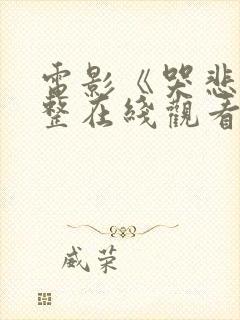 電影《哭悲
整在綫觀看
威荣